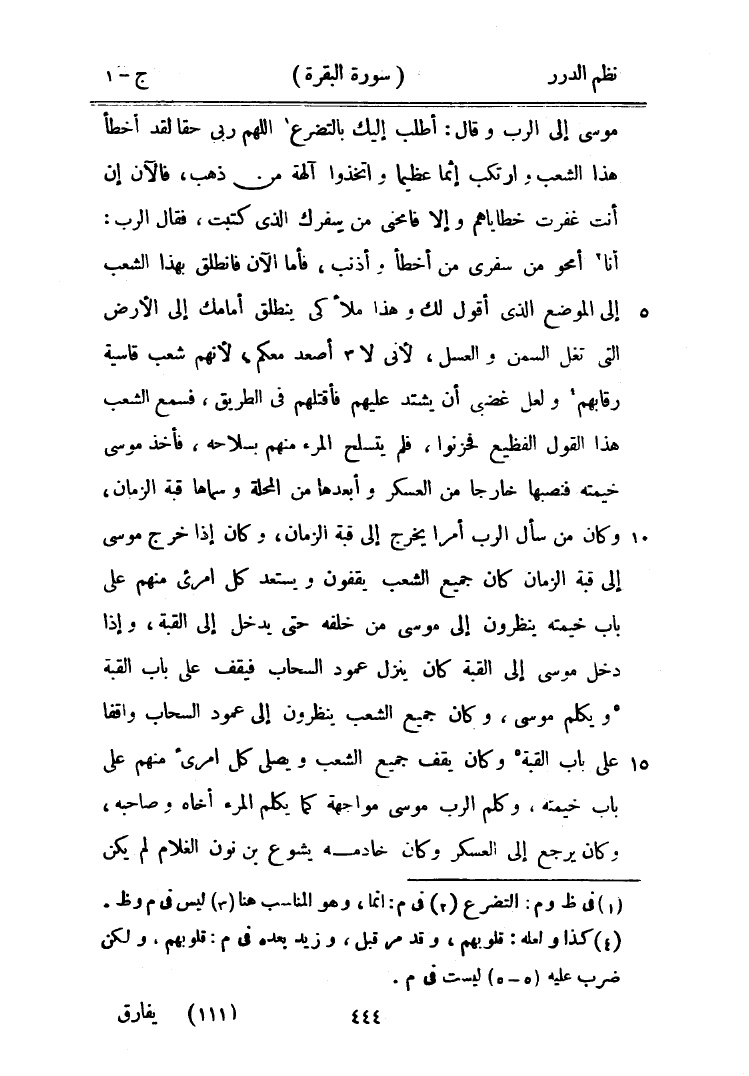 نظم الدرر ( سورة البقرة ) ج – ١
موسى إلى الرب و قال : أطلب إليك بالتضرع١ اللهم ربى حقا لقد أخطأ
هذا الشعب و ارتكب إثما عظيما و اتخذوا آلهة من ذهب ، فالآن إن
أنت غفرت خطاياهم و إلا فامحنى من سفرك الذى كتبت ، فقال الرب :
أنا٢ أمحو من سفرى من أخطأ و أذنب ، فأما الآن فانطلق بهذا الشعب
٥ إلى الموضع الذى أقول لك و هذا ملأكى ينطلق أمامك إلى الأرض
التى تغل السمن و العسل ، لأنى لا ٣ أصعد معكم ، لأنهم شعب قاسية
رقابهم٤ و لعل غضبى أن يشتد عليهم فأقتلهم فى الطريق ، فسمع الشعب
هذا القول الفظيع فحزنوا ، فلم يتسلح المرء منهم بسلاحه ، فأخذ موسى
خيمته فنصبها خارجا من العسكر و أبعدها من المحلة و سماها قبة الزمان ،
١٠ وكان من سأل الرب أمرا يخرج إلى قبة الزمان ، و كان إذا خرج موسى
إلى قبة الزمان كان جميع الشعب يقفون و يستعد كل امرئ منهم على
باب خيمته ينظرون إلى موسى من خلفه حتى يدخل إلى القبة ، و إذا
دخل موسى إلى القبة كان ينزل عمود السحاب فيقف على باب القبة
٥و يكلم موسى ، و كان جميع الشعب ينظرون إلى عمود السحاب واقفا
١٥ على باب القبة٥ وكان يقف جميع الشعب و يصلى كل امرئ منهم على
باب خيمته ، وكلم الرب موسى مواجهة كما يكلم المرء أخاه و صاحبه ،
وكان يرجع إلى العسكر وكان خادمـــه يشوع بن نون الغلام لم يكن
(١) فى ظ و م : التضرع (٢) فى م : انما ، وهو المناسب هنا (٣) ليس فى م وظ .
(٤) كذا و لعله : قلوبهم ، و قد مر قبل ، و زيد بعده فى م : قلوبهم . و لكن
ضرب عليه (٥ – ٥) ليست فى م .
٤٤٤ (١١١) يفارق